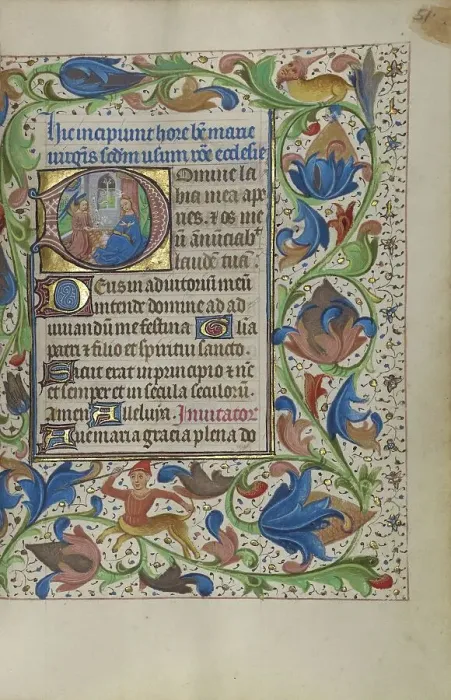 51.
Hic incipiunt hore be marie
uirgis scdm usum roe ecclesie
Domine la
bia mea ape
ries. & os me
u anunciabt
laudem tuā:
Deus in adiutoriū meū
intende domine ad ad
iuuandū me festina Glia
patri & filio et spiritui sancto.
Sicut erat in principio & nc
et semper et in secula seculorū.
amen Alleluya Inuitator
Aue maria gracia plena do